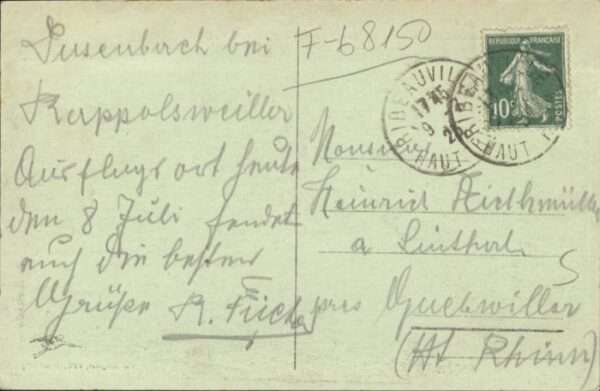 Dusenbach bei
Rappolsweiller
Ausflugsort heute
den 8 Juli sendet
euch die besten
Grüße R. Fück
F-68150
RIBEAUVIL
17 45
9
HAUT
REPUBLIQUE FRANÇAISE
10c
POSTES
Monsieur
Heinrich Riethmüller
a Linthal
pres Guebwiller
(Ht Rhin)